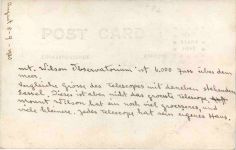 POST CARD
mt. Wilson Observatorium ist 6.000 fuss über dem
meer.
Vergleiche Grösse des Telescopes mit daneben stehenden
Sessel. Dieses ist aber nicht das grosste telescop auf
mount Wilson hat ein noch viel grosseres, und
viele kleinere. jedes telescop hat sein eigenes Haus.